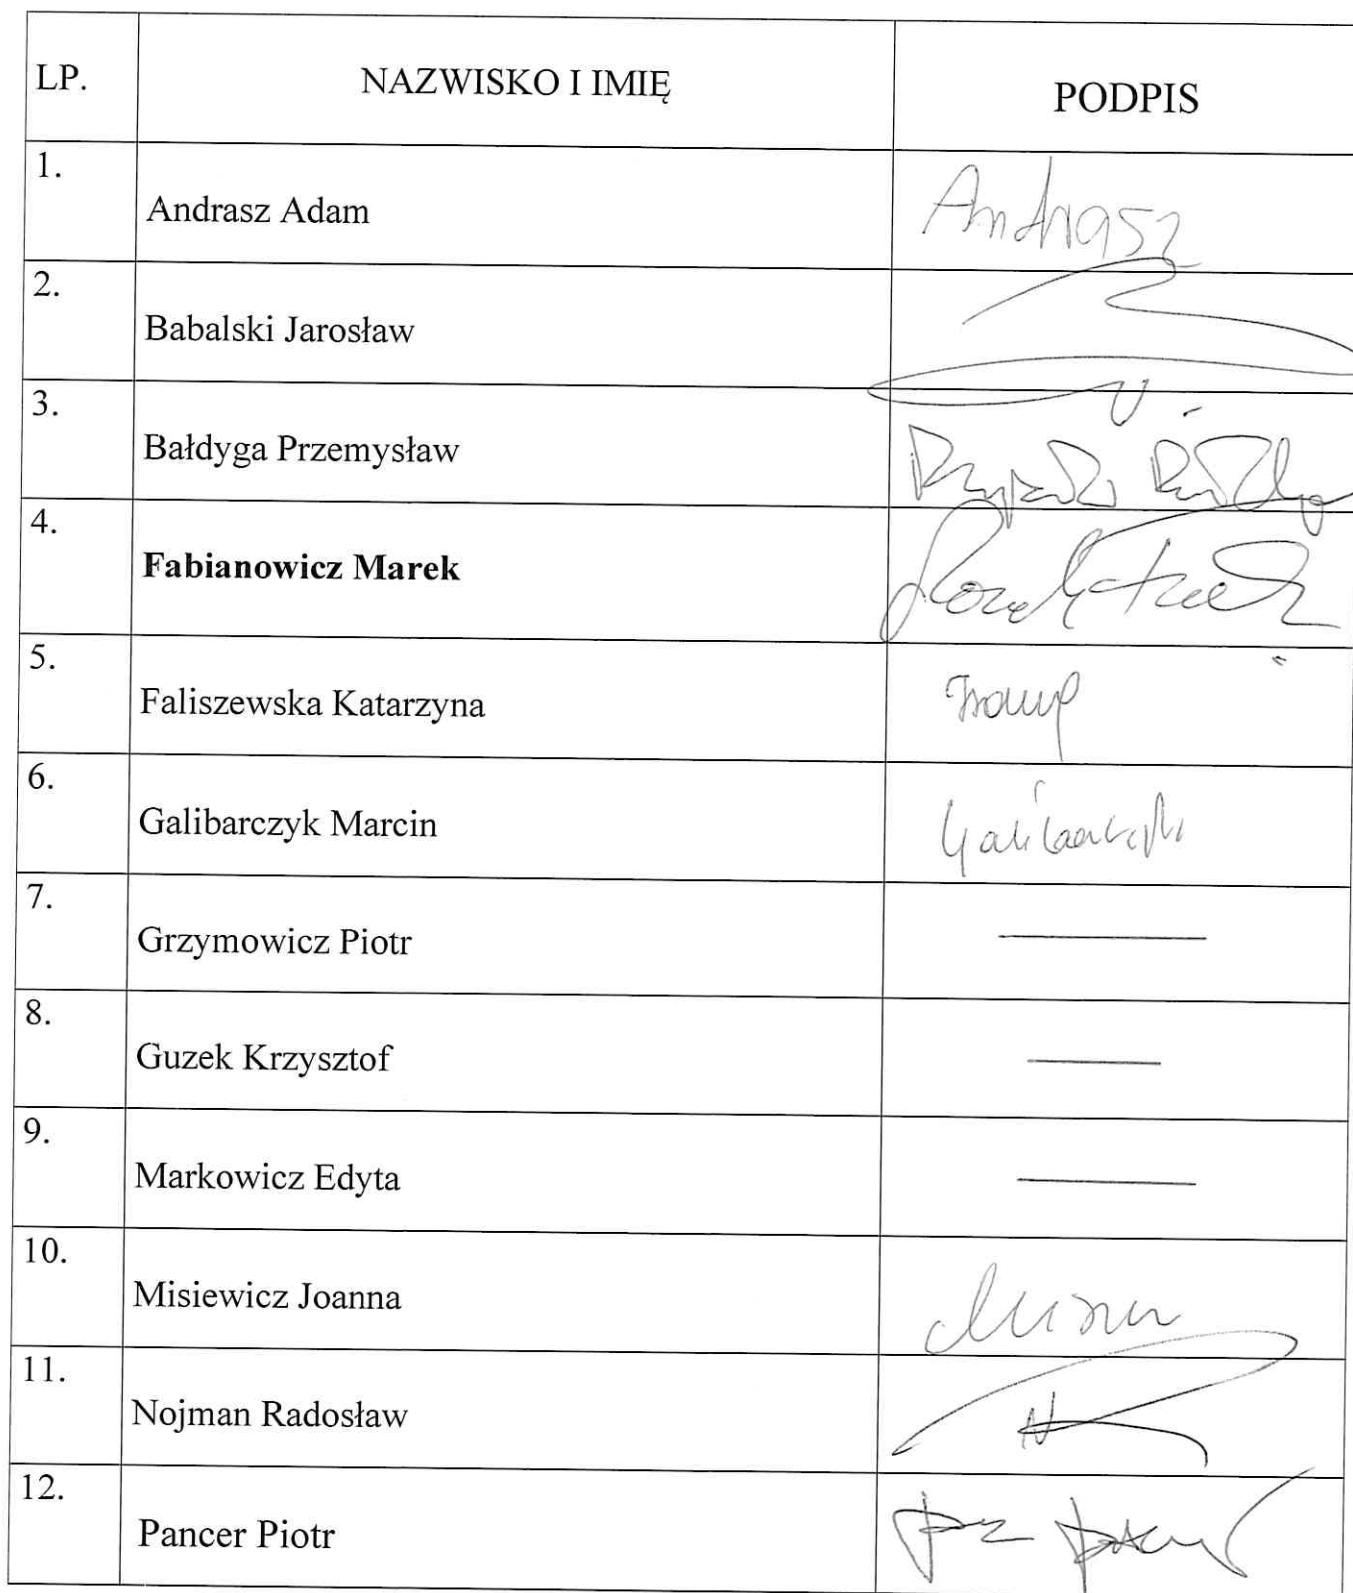 LP. NAZWISKO I IMIĘ PODPIS
1. Andrasz Adam Andrasz
2. Babalski Jarosław
3. Bałdyga Przemysław
4. Fabianowicz Marek
5. Faliszewska Katarzyna
6. Galibarczyk Marcin Galibarczyk
7. Grzymowicz Piotr —
8. Guzek Krzysztof —
9. Markowicz Edyta —
10. Misiewicz Joanna
11. Nojman Radosław
12. Pancer Piotr